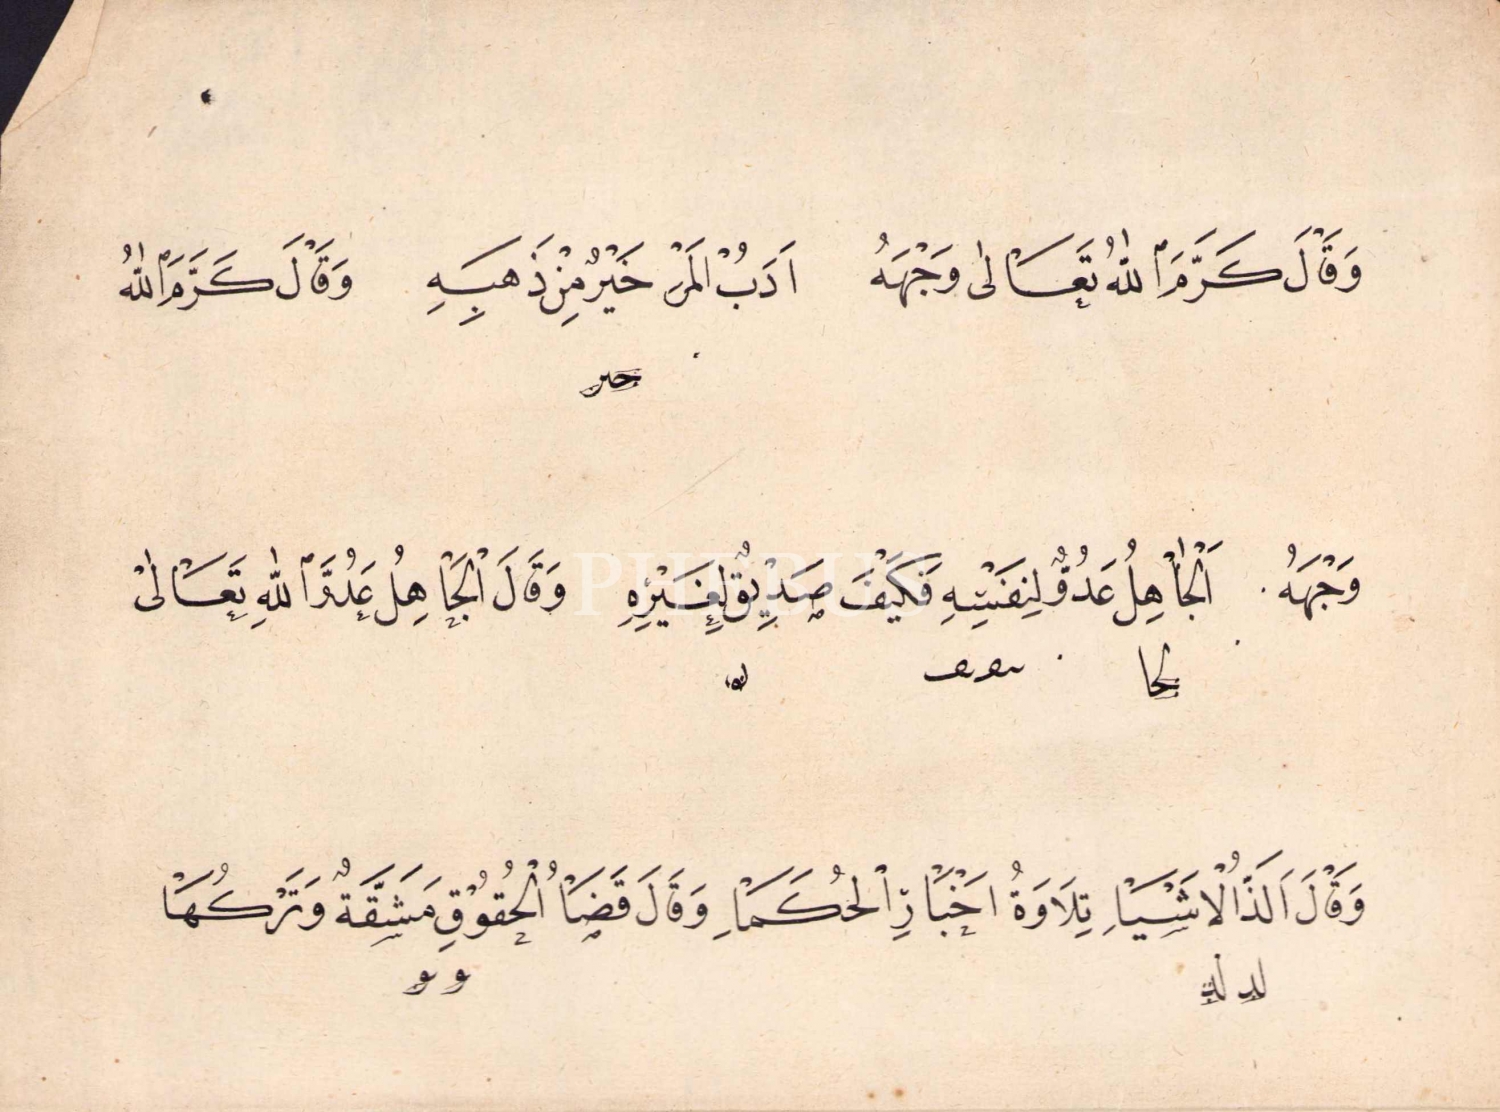 وَقَالَ كَرَّمَ اللهُ تَعَالٰى وَجْهَهُ اَدَبُ الْمَرْءِ خَيْرٌ مِنْ ذَهَبِهِ وَقَالَ كَرَّمَ اللهُ
خير
وَجْهَهُ اَلْجَاهِلُ عَدُوٌّ لِنَفْسِهِ فَكَيْفَ صَدِيقٌ لِغَيْرِهِ وَقَالَ الْجَاهِلُ عَدُوُّ اللهِ تَعَالٰى
لجا
PHEBUS
وَقَالَ اَلَذُّ الْاَشْيَاءِ تِلَاوَةُ اَخْبَارِ الْحُكَمَاءِ وَقَالَ قَضَاءُ الْحُقُوقِ مَشَقَّةٌ وَتَرْكُهَا
و و